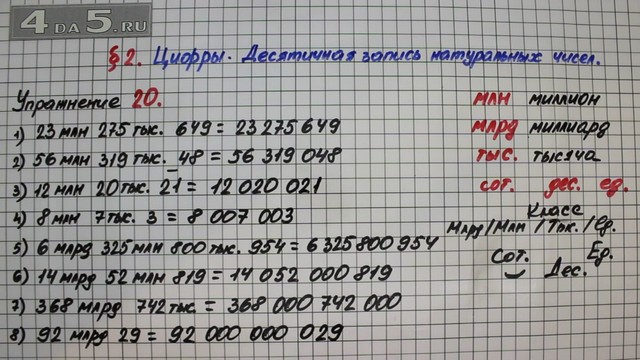 4 DA 5.RU
§2. Цифры. Десятичная запись натуральных чисел.
Упражнение 20.
1) 23 млн 275 тыс. 649 = 23 275 649
2) 56 млн 319 тыс. 48 = 56 319 048
3) 12 млн 20 тыс. 21 = 12 020 021
4) 8 млн 7 тыс. 3 = 8 007 003
5) 6 млрд 325 млн 800 тыс. 954 = 6 325 800 954
6) 14 млрд 52 млн 819 = 14 052 000 819
7) 368 млрд 742 тыс = 368 000 742 000
8) 92 млрд 29 = 92 000 000 029
млн миллион
млрд миллиард
тыс. тысяча
сот. дес. ед.
Классы
Млрд/Млн/Тыс./Ед.
Сот. Ед.
Дес.